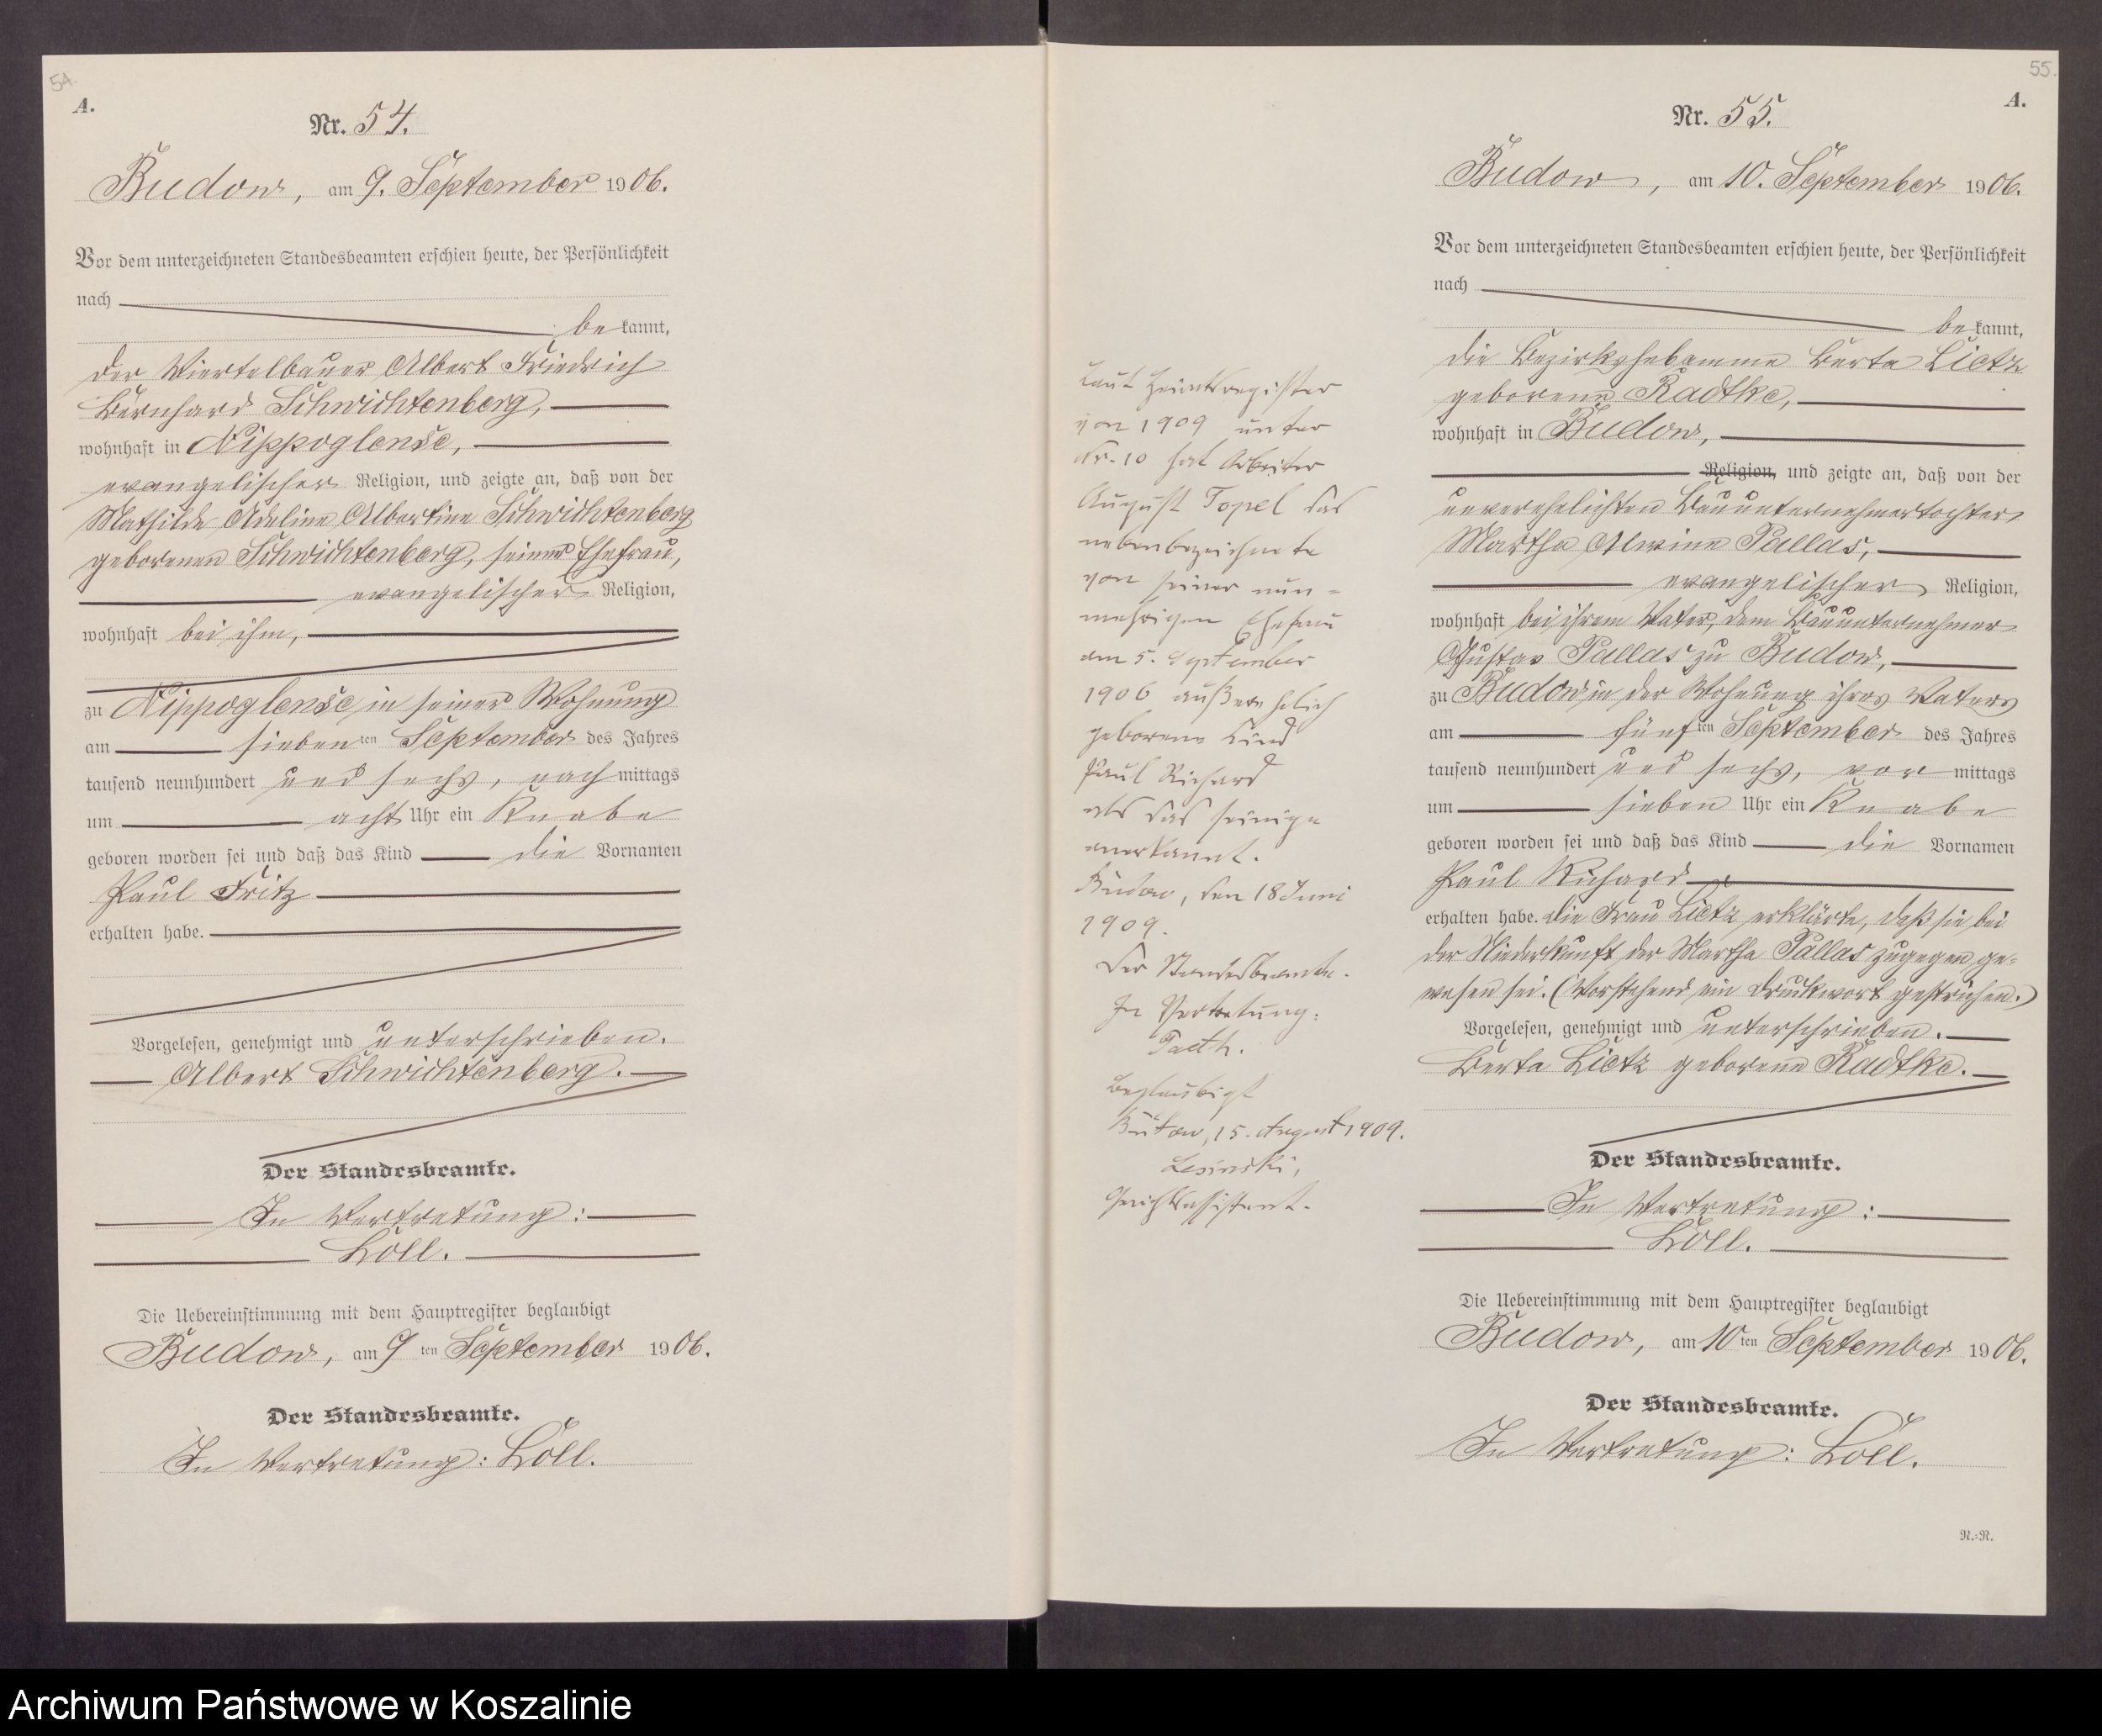 54.
A.
Nr. 54.
Budow, am 9. September 1906.
Vor dem unterzeichneten Standesbeamten erschien heute, der Persönlichkeit
nach
bekannt,
der Viertelbauer Albert Friedrich
Bernhard Schwichtenberg,
wohnhaft in Nippoglense,
evangelischer Religion, und zeigte an, daß von der
Mathilde Adeline Albertine Schwichtenberg
geborenen Schwichtenberg, seiner Ehefrau,
evangelischer Religion,
wohnhaft bei ihm,
zu Nippoglense in seiner Wohnung
am siebenten September des Jahres
tausend neunhundert und sechs, nachmittags
um acht Uhr ein Knabe
geboren worden sei und daß das Kind die Vornamen
Paul Fritz
erhalten habe.
Vorgelesen, genehmigt und unterschrieben.
Albert Schwichtenberg.
Der Standesbeamte.
In Vertretung:
Löll.
Die Uebereinstimmung mit dem Hauptregister beglaubigt
Budow, am 9ten September 1906.
Der Standesbeamte.
In Vertretung: Löll.
Laut Heiratsregister
von 1909 unter
Nr. 10 hat Arbeiter
August Topel das
nebenbezeichnete
von seiner nun=
mehrigen Ehefrau
am 5. September
1906 außerehelich
geborene Kind
Paul Richard
als das seinige
anerkannt.
Budow, den 18 Juni
1909.
Der Standesbeamte.
In Vertretung:
Beglaubigt
Bütow, 15. August 1909.
Lesinski,
Gerichtsassistent.
55.
A.
Nr. 55.
Budow, am 10. September 1906.
Vor dem unterzeichneten Standesbeamten erschien heute, der Persönlichkeit
nach
bekannt,
die Bezirkshebamme Berta Lietz
geborene Radtke,
wohnhaft in Budow,
Religion, und zeigte an, daß von der
unverehelichten Bauunternehmertochter
Martha Alwine Pallas,
evangelischer Religion,
wohnhaft bei ihrem Vater, dem Bauunternehmer
Gustav Pallas zu Budow,
zu Budow in der Wohnung ihres Vaters
am fünften September des Jahres
tausend neunhundert und sechs, vormittags
um sieben Uhr ein Knabe
geboren worden sei und daß das Kind die Vornamen
Paul Richard
erhalten habe. Die Frau Lietz erklärte, daß sie bei
der Niederkunft der Martha Pallas zugegen ge=
wesen sei. (Vorstehend ein Druckwort gestrichen.)
Vorgelesen, genehmigt und unterschrieben.
Berta Lietz geborene Radtke.
Der Standesbeamte.
In Vertretung:
Löll.
Die Uebereinstimmung mit dem Hauptregister beglaubigt
Budow, am 10ten September 1906.
Der Standesbeamte.
In Vertretung: Löll.
N.=R.
Archiwum Państwowe w Koszalinie